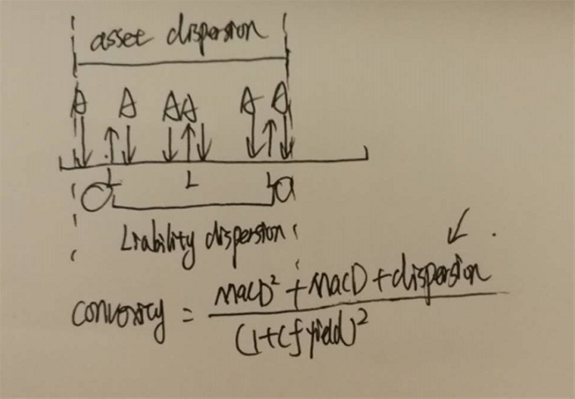 asset dispersion
A A AA A A
L L L
Liability dispersion
convexity = MacD² + MacD + dispersion
(1+Cf yield)²